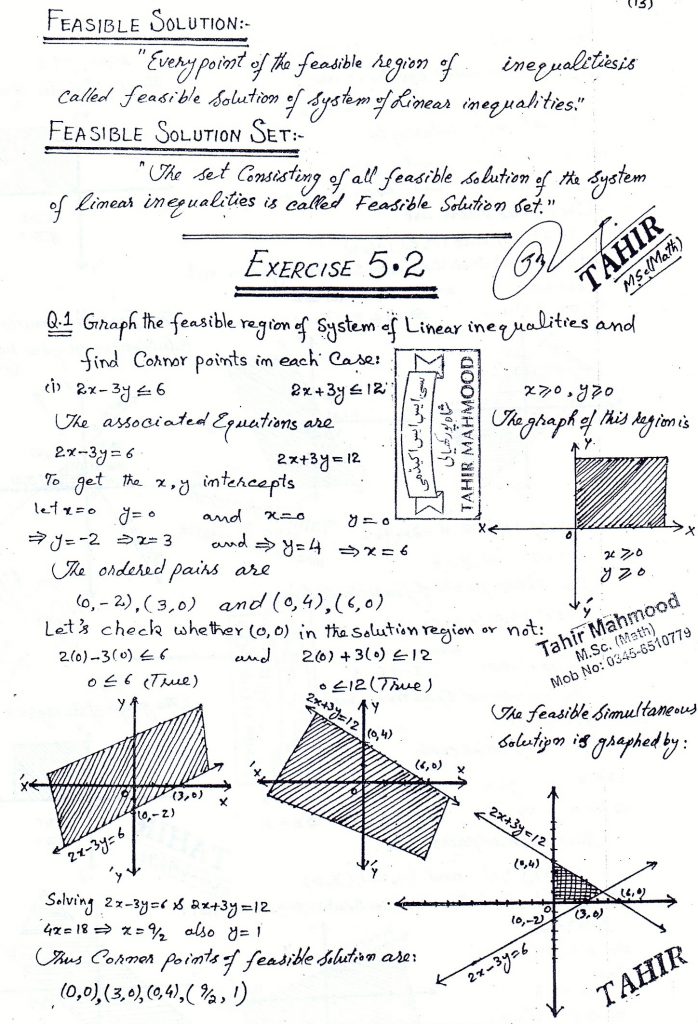 (13)
FEASIBLE SOLUTION:-
"Every point of the feasible region of inequalities is
called feasible solution of system of Linear inequalities."
FEASIBLE SOLUTION SET:-
"The set consisting of all feasible solution of the system
of linear inequalities is called Feasible Solution Set."
TAHIR
M.Sc(Math)
EXERCISE 5.2
Q.1 Graph the feasible region of System of Linear inequalities and
find Cornor points in each Case:
(i) 2x-3y≤6 2x+3y≤12 x≥0, y≥0
TAHIR MAHMOOD
The associated Equations are The graph of this region is
2x-3y=6 2x+3y=12
To get the x,y intercepts
let x=0 y=0 and x=0 y=0
⇒y=-2 ⇒x=3 and ⇒y=4 ⇒x=6
Y
X' 0 X
x≥0
y≥0
Y'
The ordered pairs are
(0,-2),(3,0) and (0,4),(6,0)
Let's check whether (0,0) in the solution region or not:
Tahir Mahmood
M.Sc. (Math)
Mob No: 0345-6510779
2(0)-3(0)≤6 and 2(0)+3(0)≤12
0≤6 (True) 0≤12 (True)
The feasible simultaneous
solution is graphed by:
Y
X' 0 (3,0) X
(0,-2)
2x-3y=6
Y'
2x+3y=12 Y
(0,4)
(6,0)
X' 0 X
Y'
2x+3y=12
(0,4)
(6,0)
0 (3,0)
(0,-2)
2x-3y=6
TAHIR
Solving 2x-3y=6 & 2x+3y=12
4x=18 ⇒ x=9/2 also y=1
Thus Corner points of feasible solution are:
(0,0),(3,0),(0,4),(9/2, 1)